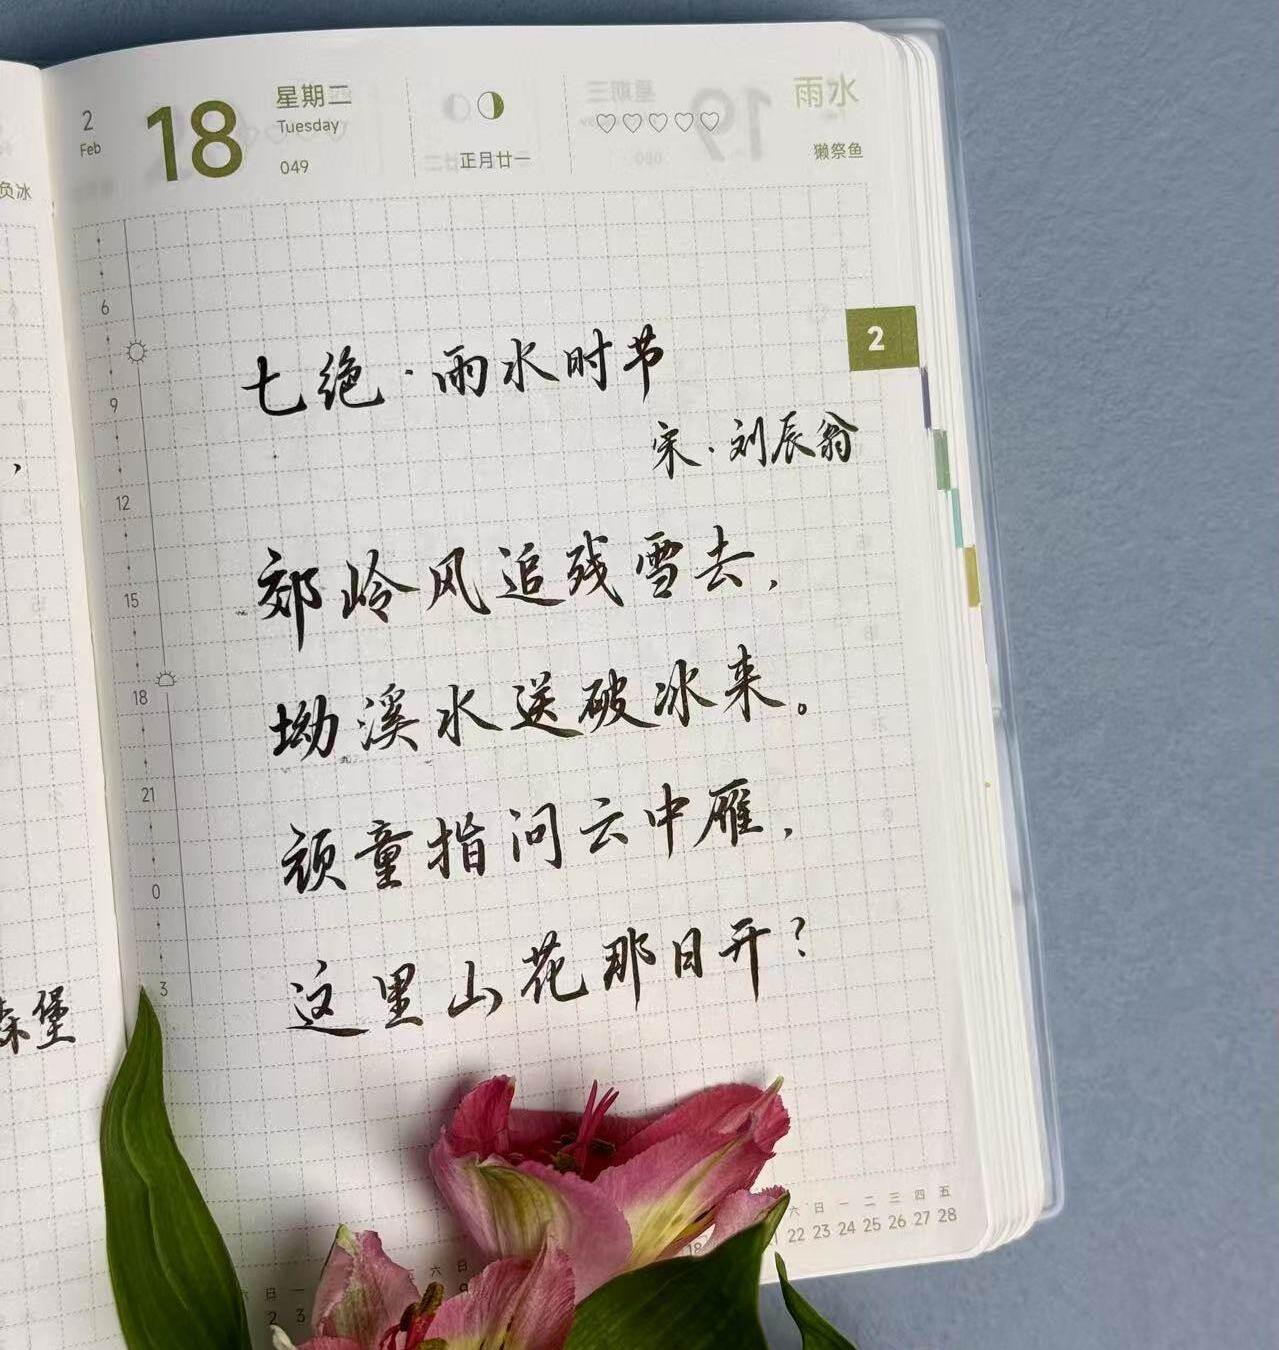 2
Feb
18
星期二
Tuesday
049
正月廿一
雨水
獭祭鱼
负冰
2
七绝·雨水时节
宋·刘辰翁
郊岭风追残雪去，
坳溪水送破冰来。
顽童指问云中雁，
这里山花那日开？
，
森堡
6
9
12
15
18
21
0
3
六 日 一 二 三 四 五
22 23 24 25 26 27 28
18
六 日
日 一
2 3